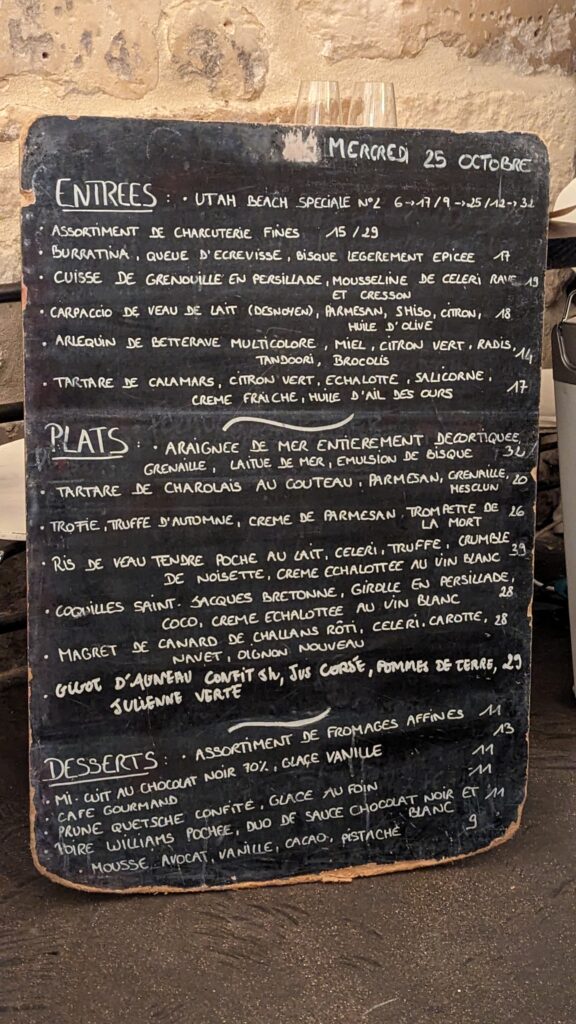 MERCREDI 25 OCTOBRE
ENTREES : · UTAH BEACH SPECIALE N°2 6→17/9→25/12→32
· ASSORTIMENT DE CHARCUTERIE FINES 15/29
· BURRATINA, QUEUE D'ECREVISSE, BISQUE LEGEREMENT EPICEE 17
CUISSE DE GRENOUILLE EN PERSILLADE, MOUSSELINE DE CELERI RAVE 19
ET CRESSON
· CARPACCIO DE VEAU DE LAIT (DESNOYEN), PARMESAN, SHISO, CITRON, 18
HUILE D'OLIVE
· ARLEQUIN DE BETTERAVE MULTICOLORE, MIEL, CITRON VERT, RADIS, 14
TANDOORI, BROCOLIS
· TARTARE DE CALAMARS, CITRON VERT, ECHALOTTE, SALICORNE, 17
CREME FRAICHE, HUILE D'AIL DES OURS
PLATS : · ARAIGNEE DE MER ENTIEREMENT DECORTIQUEE, 32
GRENAILLE, LAITUE DE MER, EMULSION DE BISQUE
· TARTARE DE CHAROLAIS AU COUTEAU, PARMESAN, GRENAILLE, 20
MESCLUN
· TROFIE, TRUFFE D'AUTOMNE, CREME DE PARMESAN, TROMPETTE DE 26
LA MORT
· RIS DE VEAU TENDRE POCHE AU LAIT, CELERI, TRUFFE, CRUMBLE 39
DE NOISETTE, CREME ECHALOTTEE AU VIN BLANC
· COQUILLES SAINT-JACQUES BRETONNE, GIROLLE EN PERSILLADE, 28
COCO, CREME ECHALOTTEE AU VIN BLANC
· MAGRET DE CANARD DE CHALLANS RÔTI, CELERI, CAROTTE, 28
NAVET, OIGNON NOUVEAU
· GIGOT D'AGNEAU CONFIT 5h, JUS CORSÉ, POMMES DE TERRE, 29
JULIENNE VERTE
DESSERTS : · ASSORTIMENT DE FROMAGES AFFINES 11
· MI-CUIT AU CHOCOLAT NOIR 70%, GLAÇE VANILLE 13
CAFE GOURMAND 11
PRUNE QUETSCHE CONFITE, GLACE AU FOIN 11
POIRE WILLIAMS POCHEE, DUO DE SAUCE CHOCOLAT NOIR ET 11
BLANC
· MOUSSE AVOCAT, VANILLE, CACAO, PISTACHE 9